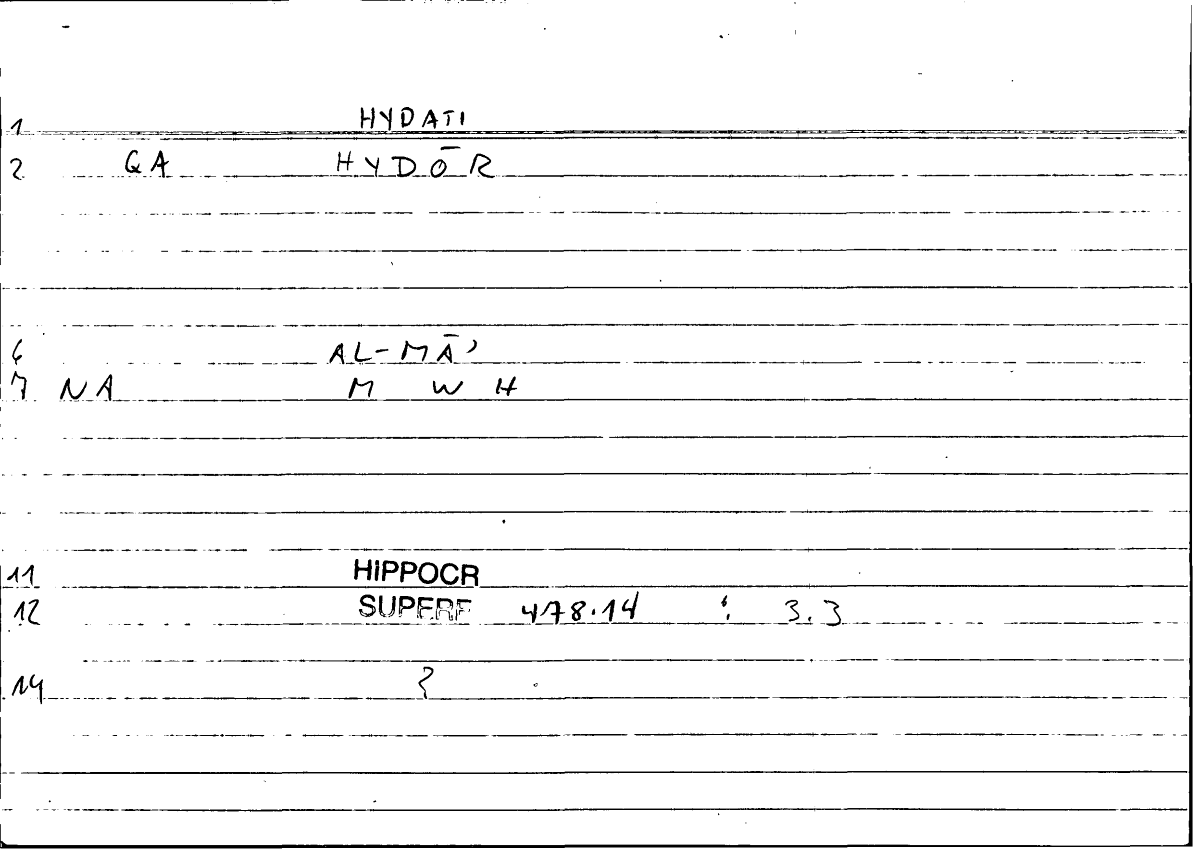 1 HYDATI
2 GA HYDŌR
6 AL-MĀʾ
7 NA M W H
11 HIPPOCR
12 SUPERF 478.14 : 3.3
14 ?